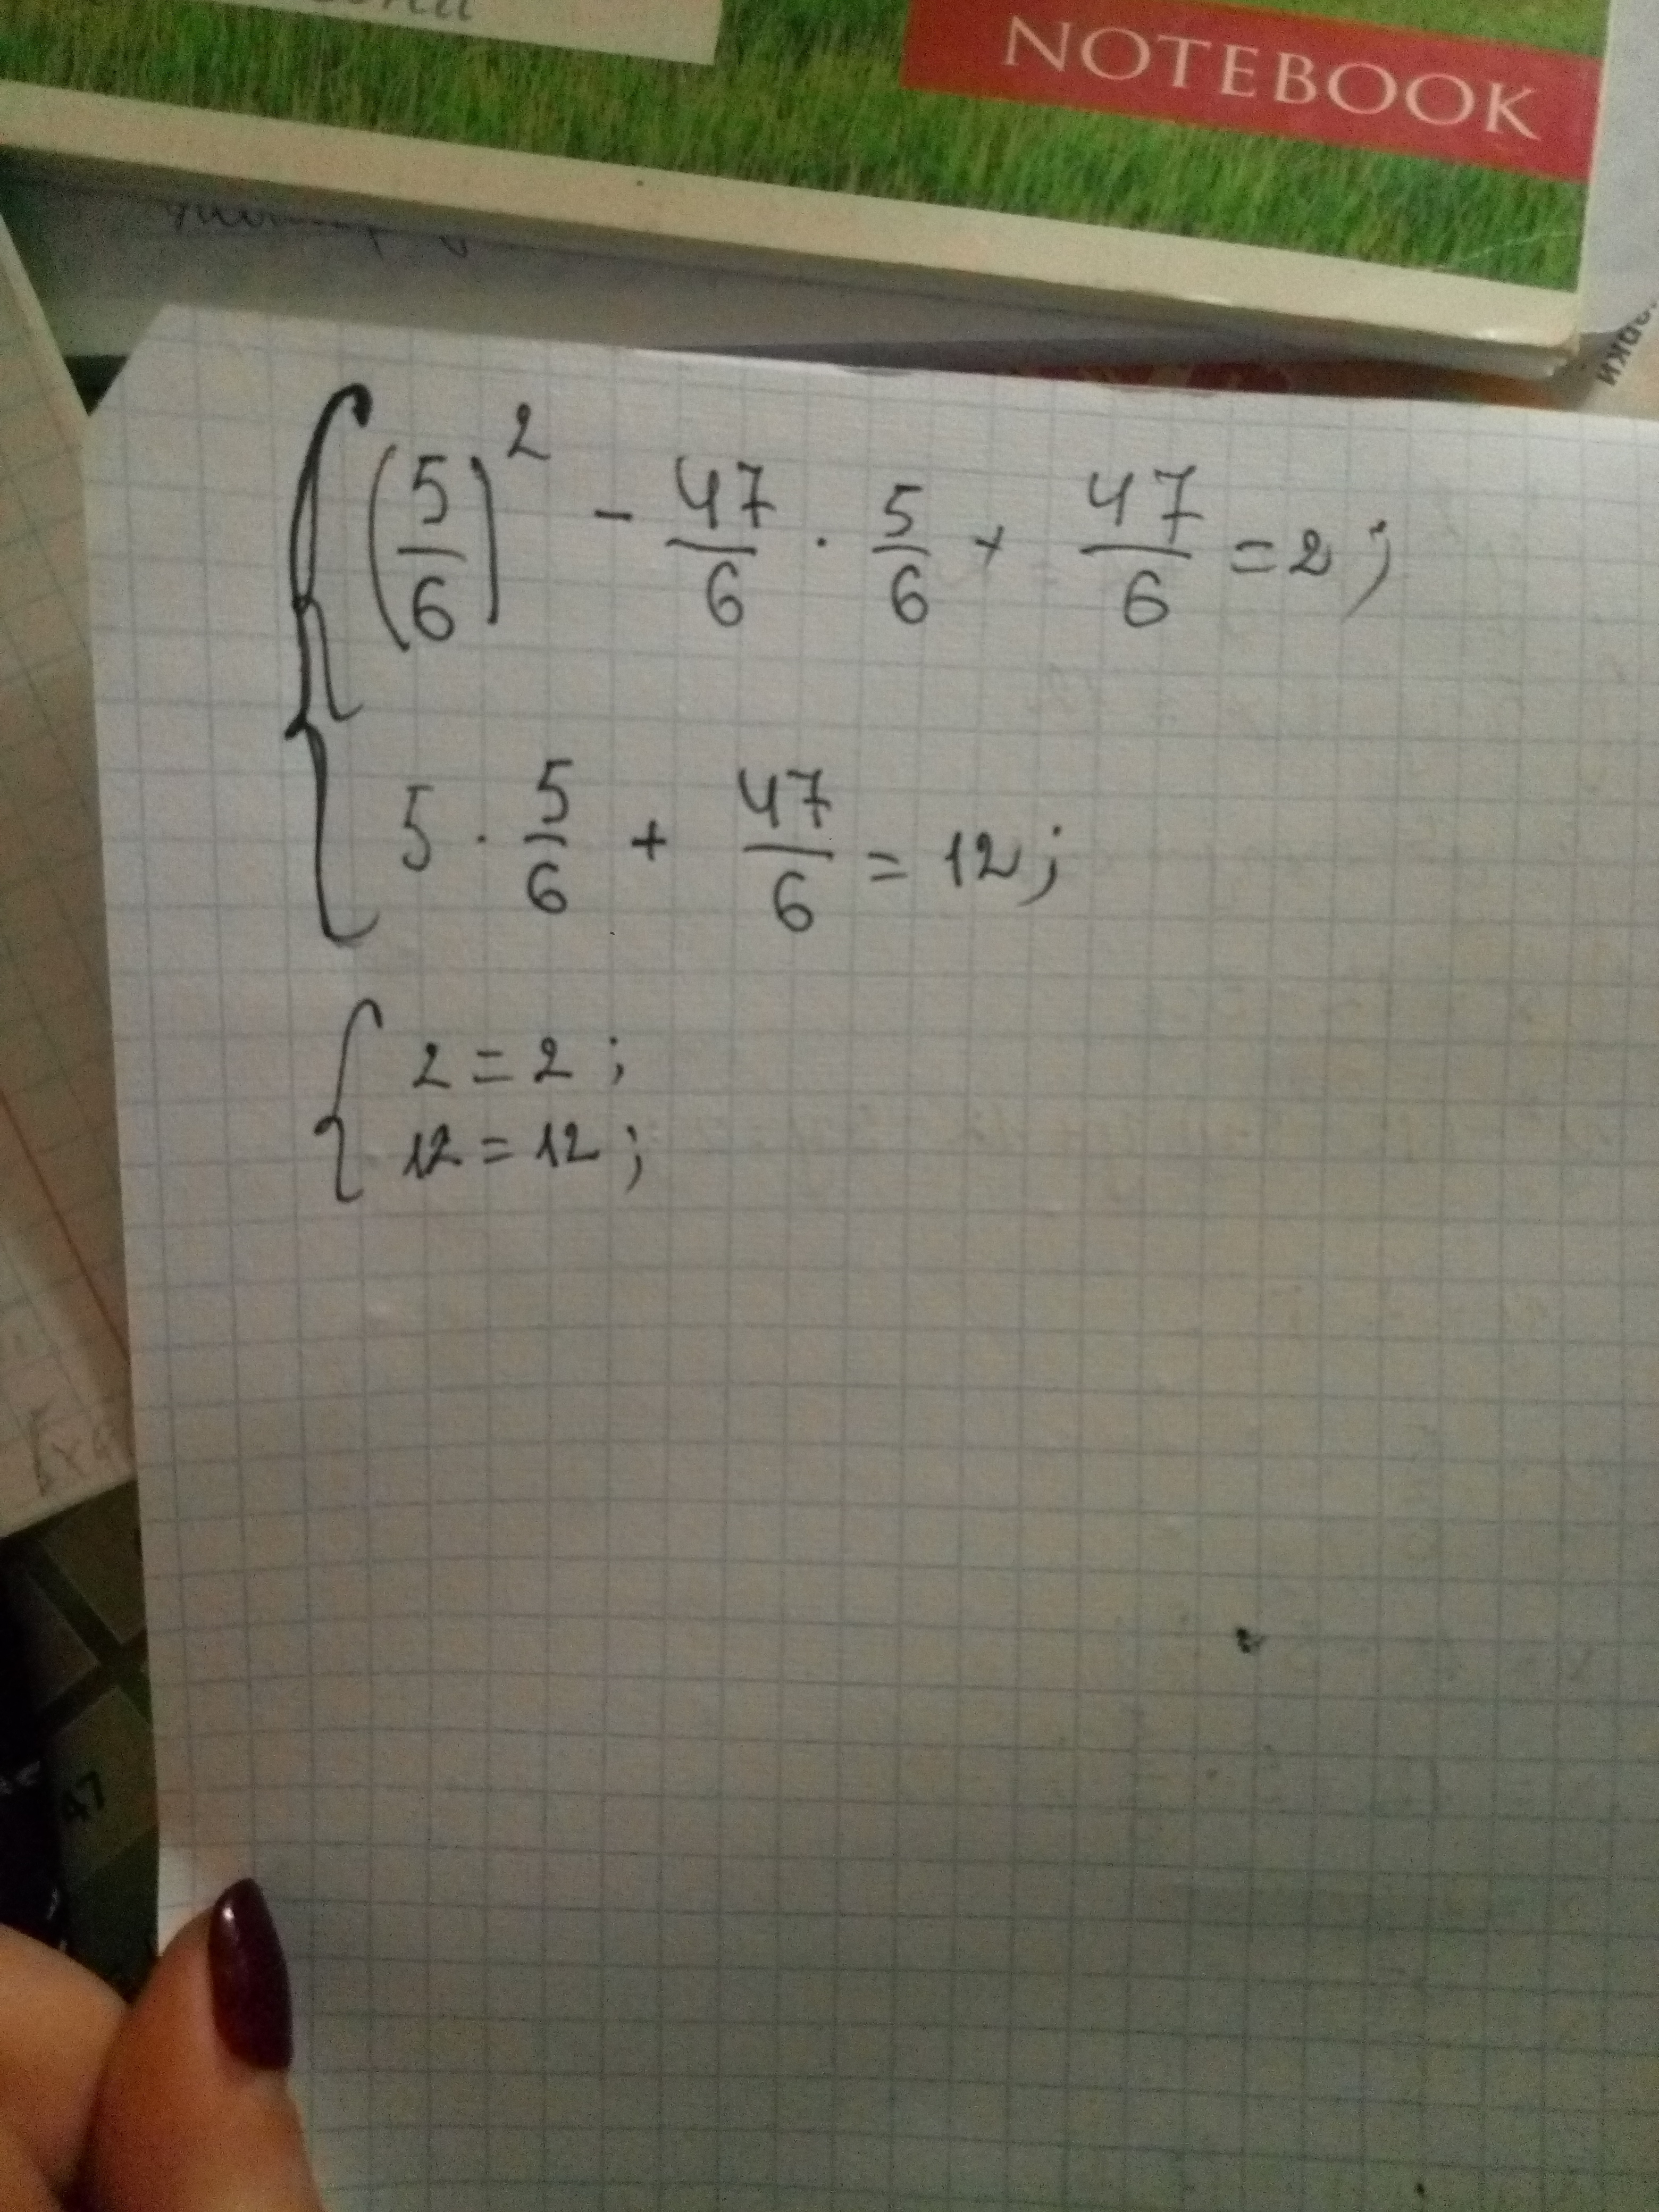 NOTEBOOK
(5/6)² - 47/6 · 5/6 + 47/6 = 2;
5 · 5/6 + 47/6 = 12;
2 = 2;
12 = 12;
47